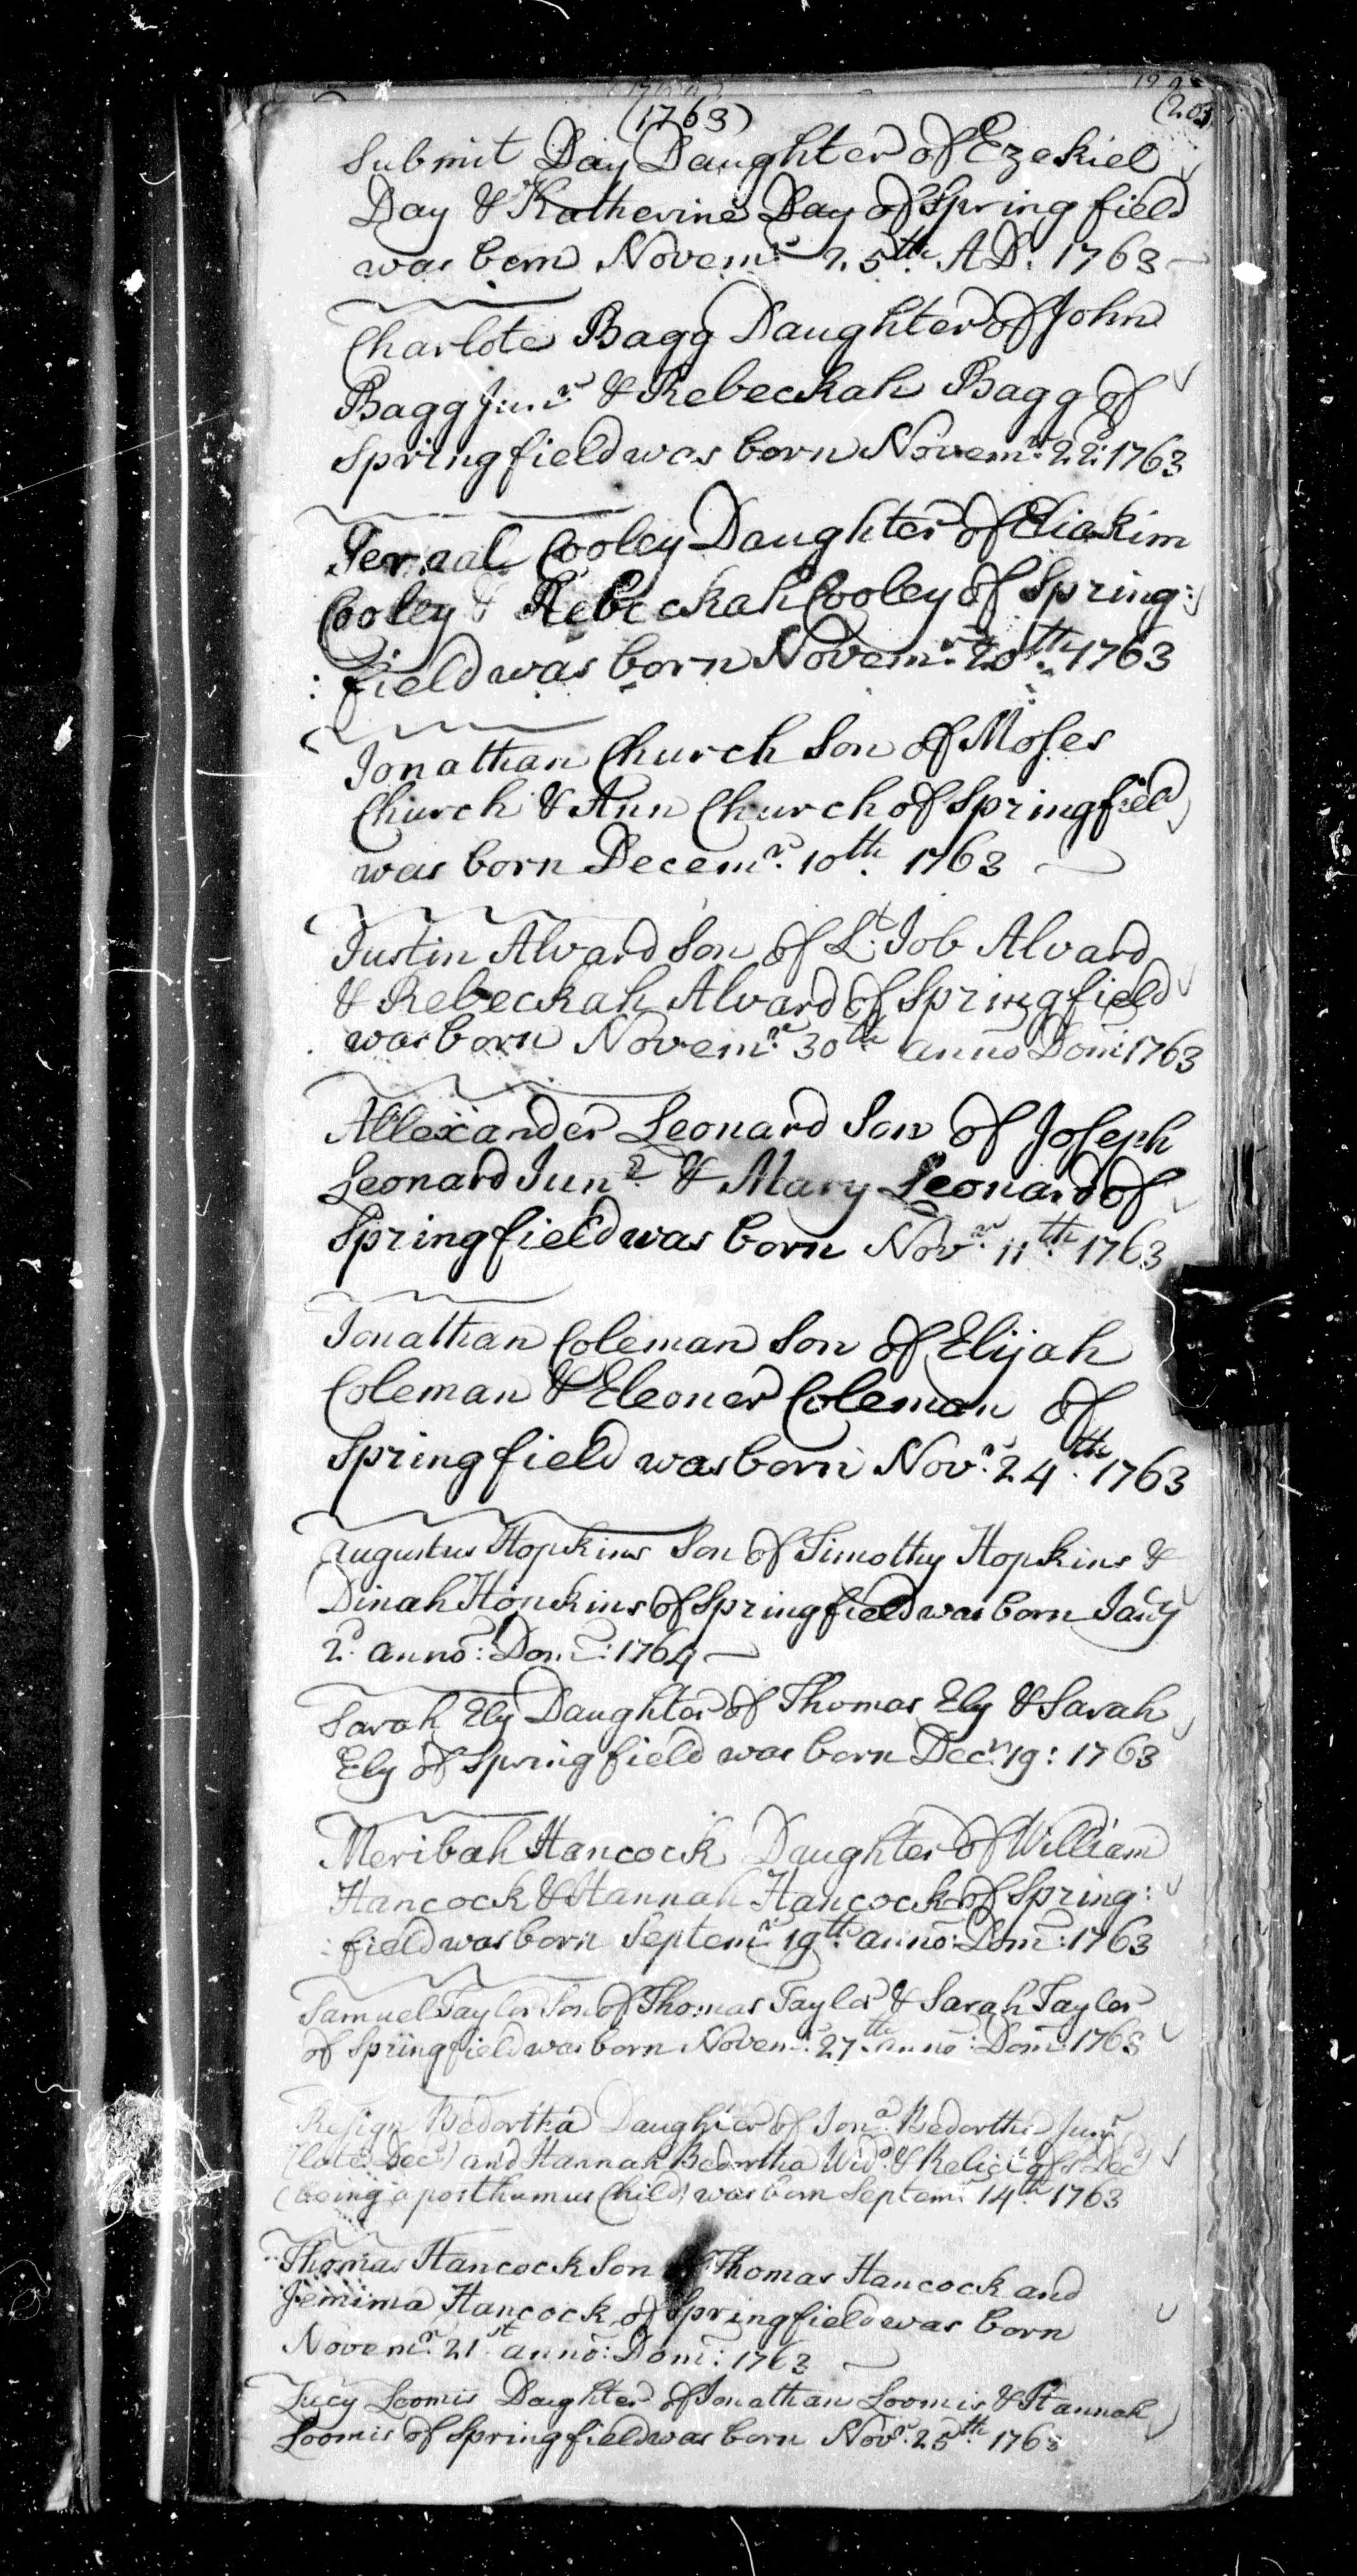 (1763)
(203
Submit Day Daughter of Ezekiel
Day & Katherine Day of Springfield
was born Novemr. 25th. A.D: 1763
Charlote Bagg Daughter of John
Bagg Junr. & Rebeckah Bagg of
Springfield was born Novemr. 22d: 1763
Cooley Daughter of Eliakim
Cooley & Rebeckah Cooley of Spring:
: field was born Novemr. 20th. 1763
Jonathan Church Son of Moses
Church & Ann Church of Springfield
was born Decemr. 10th. 1763
Justin Alvard Son of Lt. Job Alvard
& Rebeckah Alvard of Springfield
was born Novemr. 30th anno Dom: 1763
Allexander Leonard Son of Joseph
Leonard Junr. & Mary Leonard of
Springfield was born Novr. 11th. 1763
Jonathan Coleman Son of Elijah
Coleman & Eleoner Coleman of
Springfield was born Novr. 24th. 1763
Augustus Hopkins Son of Timothy Hopkins &
Dinah Hopkins of Springfield was born Jany
2d. anno: Dom: 1764
Sarah Ely Daughter of Thomas Ely & Sarah
Ely of Springfield was born Decr. 19: 1763
Meribah Hancock Daughter of William
Hancock & Hannah Hancock of Spring:
: field was born Septemr. 19th. anno: Dom: 1763
Samuel Taylor Son of Thomas Taylor & Sarah Taylor
of Springfield was born Novemr. 27th. anno: Dom: 1763
Resign Bedortha Daughter of Jona. Bedortha Junr.
(late Decd) and Hannah Bedortha Wido. & Relict of sd. Decd
(being a posthumus Child) was born Septemr. 14th. 1763
Thomas Hancock Son of Thomas Hancock and
Jemima Hancock of Springfield was born
Novemr. 21st. anno: Dom: 1763
Lucy Loomis Daughter of Jonathan Loomis & Hannah
Loomis of Springfield was born Novr. 25th. 1763